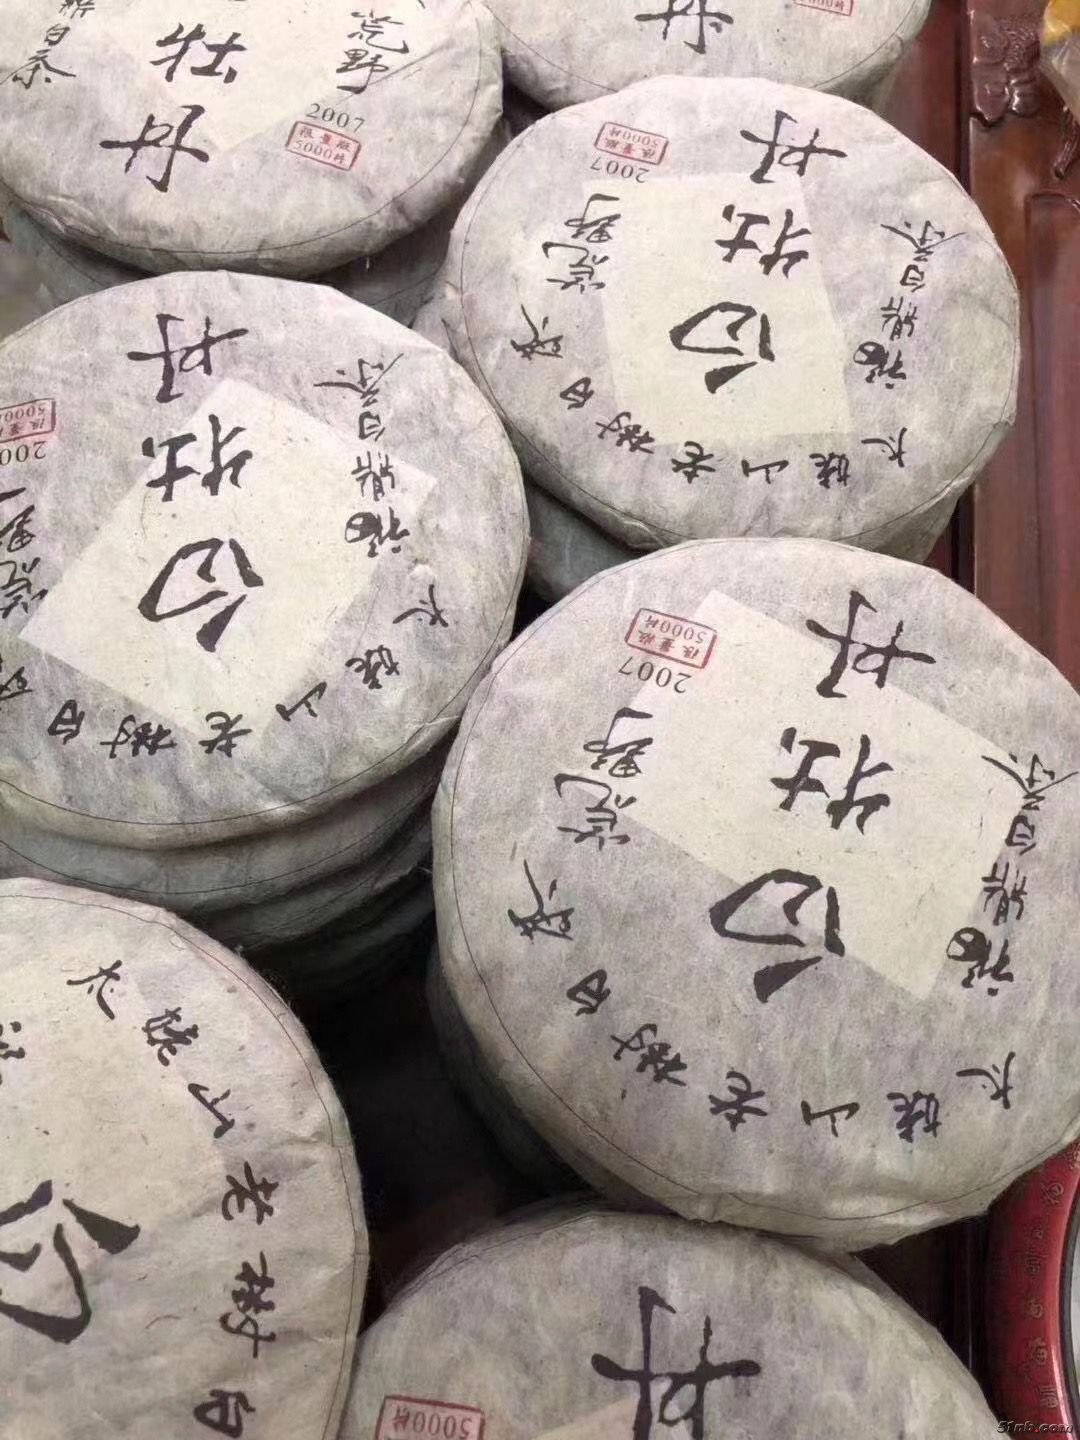 鼎白茶
牡丹
荒野
2007
限量版
5000片
丹
白牡丹
福鼎白茶
荒野
2007
限量版
5000片
太姥山老樹白
白牡丹
福鼎白茶
荒野
限量版
太姥山老樹白
白牡丹
福鼎白茶
荒野
2007
限量版
5000片
太姥山老樹白
太姥山老樹白
白
丹
5000片
51nb.com